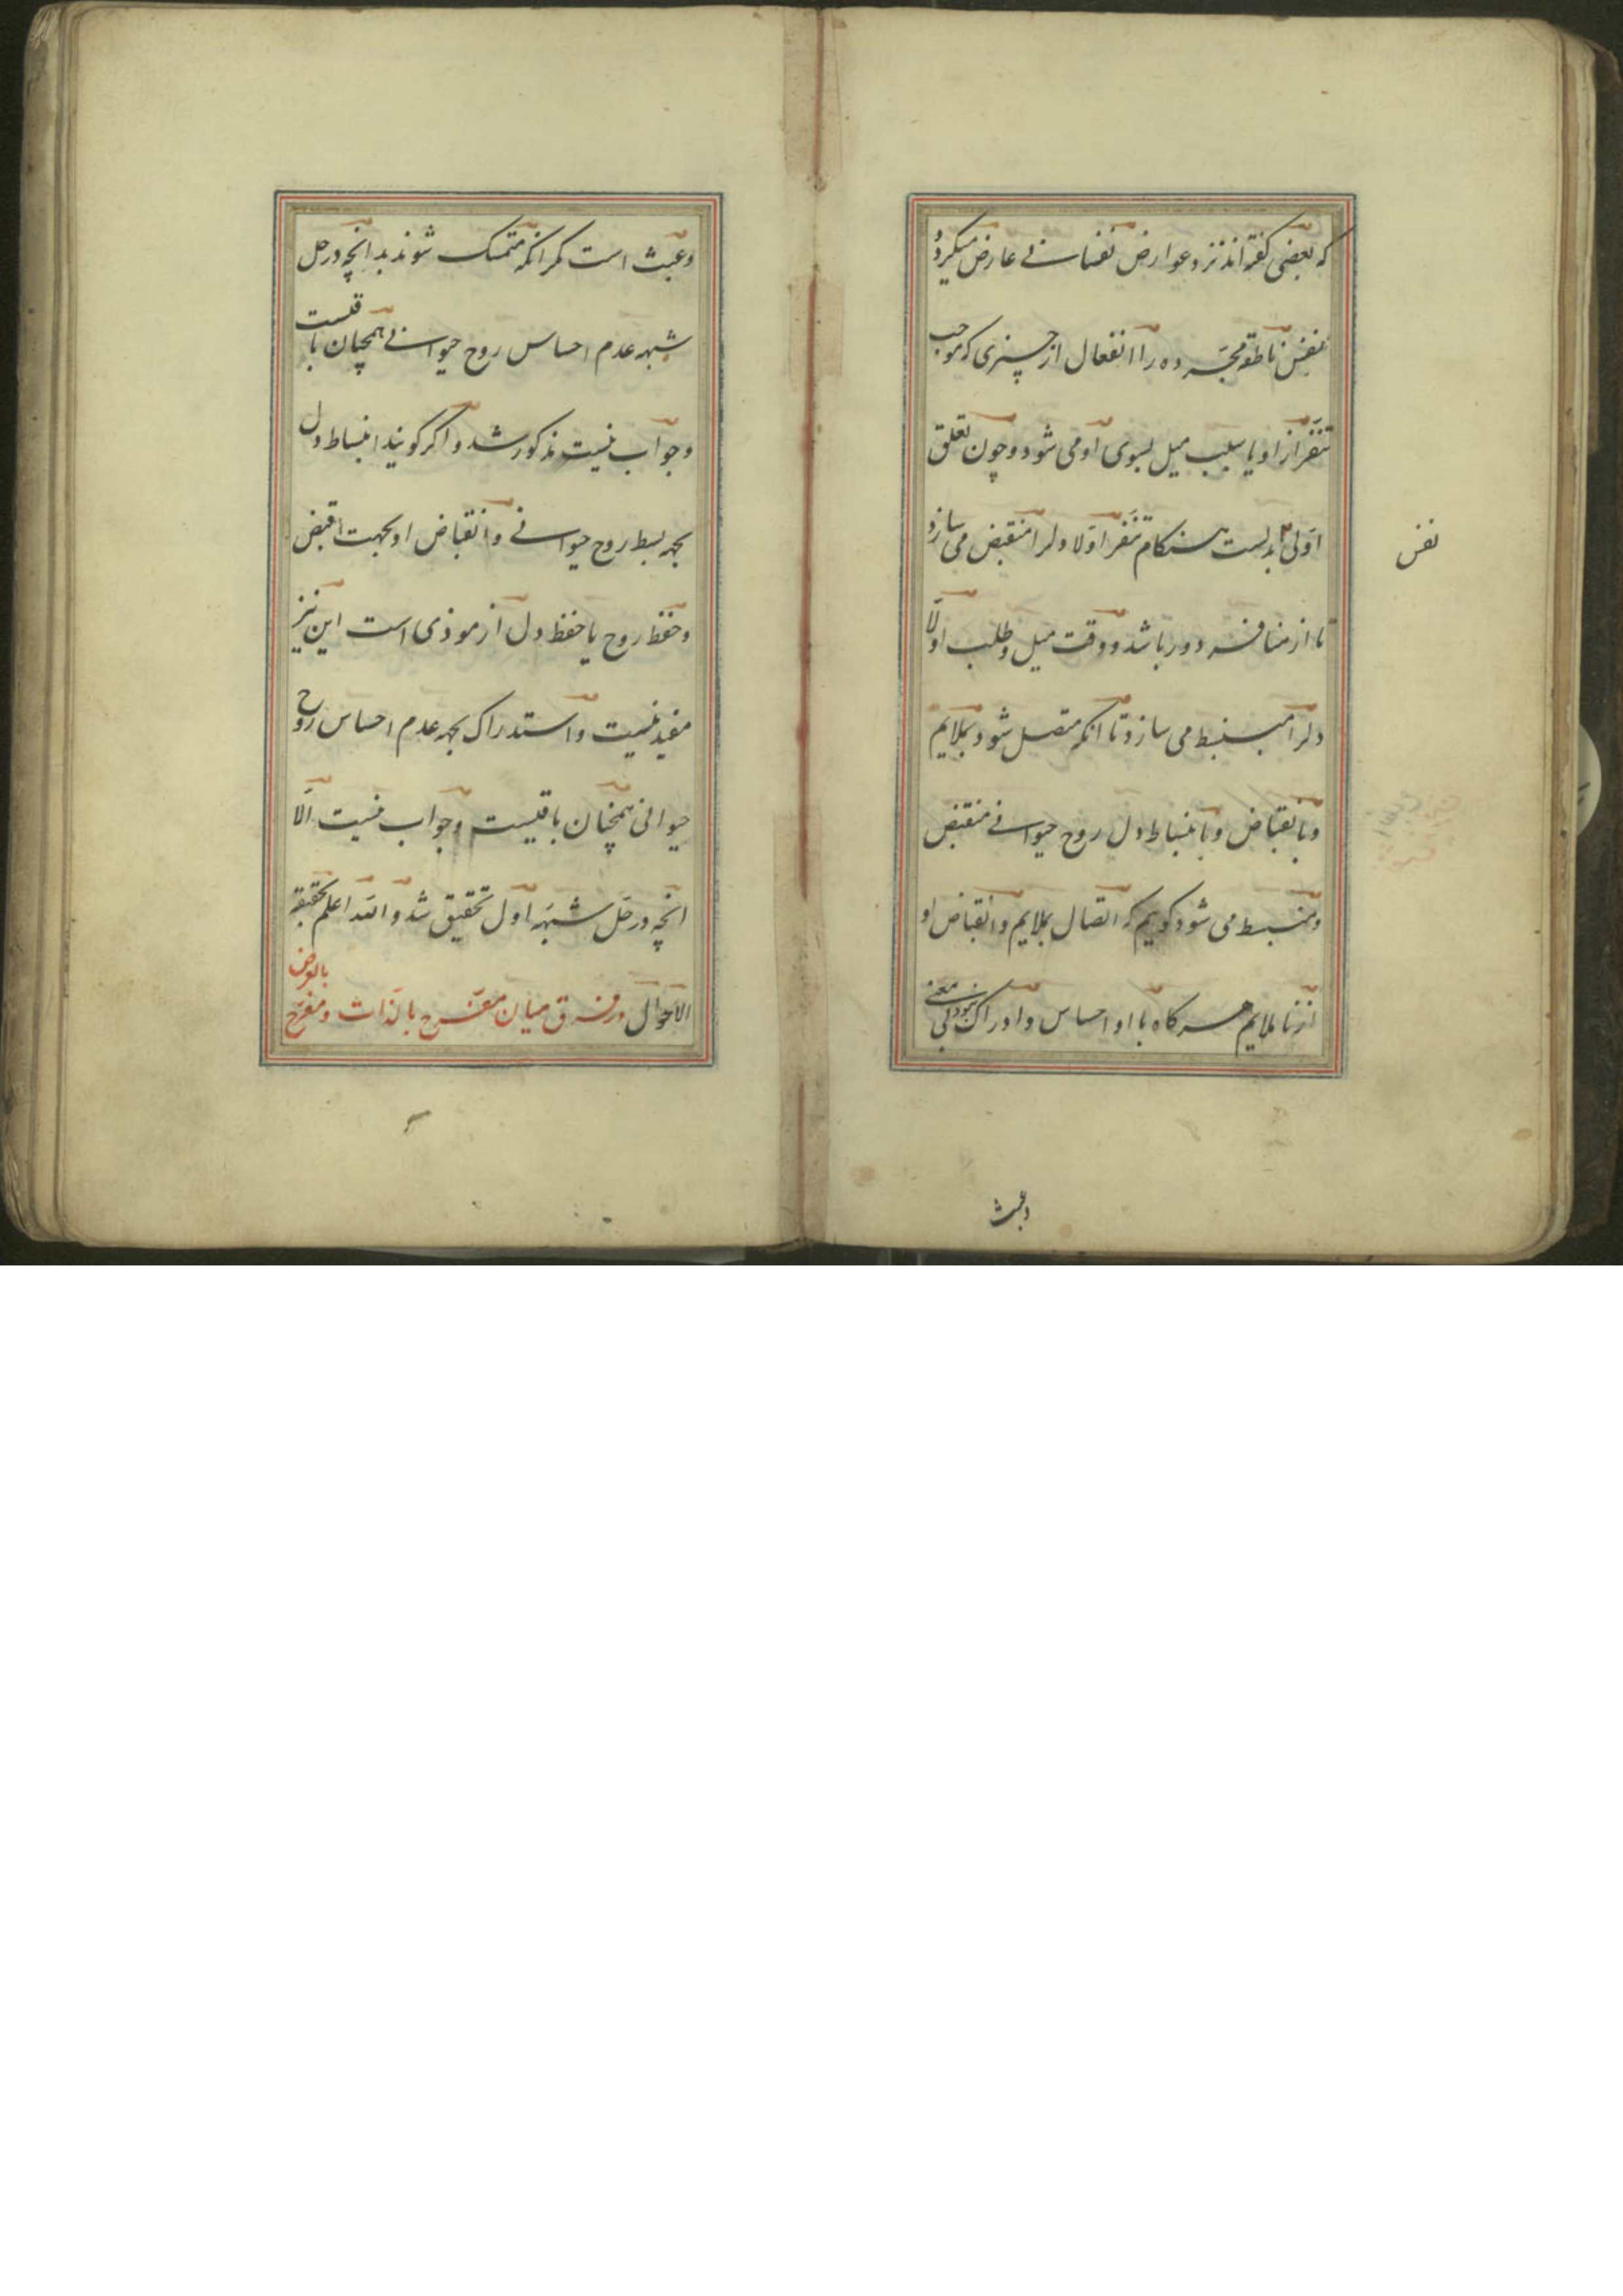 که بعضی گفته اند نزد عوارض نفسانی عارض میکردد
نفس ناطقه مجرده را انفعال از چیزی که موجب
تنفر از او یا سبب میل بسوی او می شود و چون تعلق
اولی بدلست هنکام تنفر اولا دلرا منقبض می سازد
نفس
تا از منافر دور باشد و وقت میل و طلب اولا
دلرا منبسط می سازد تا انکه متصل شود بملایم
و بانقباض و بانبساط دل روح حیوانی منقبض
و منبسط می شود کویم که اتصال بملایم و انقباض او
از نا ملایم هرکاه با او احساس و ادراک نبود بی معنی
وعبث
وعبث است مکر انکه متمسک شوند بدانچه در حل
شبهه عدم احساس روح حیوانی همچنان باقیست
و جواب نیست مذکور شد و اکر کویند انبساط دل
بجهه بسط روح حیوانی و انقباض او بجهت قبض
و حفظ روح یا حفظ دل از موذی است این نیز
مفید نیست و استدراک بجهه عدم احساس روح
حیوانی همچنان باقیست و جواب نیست الّا
انچه در حل شبهه اول تحقیق شد و الله اعلم بحقیقة
الاحوال در فرق میان مفرح بالذات و مفرح بالعرض